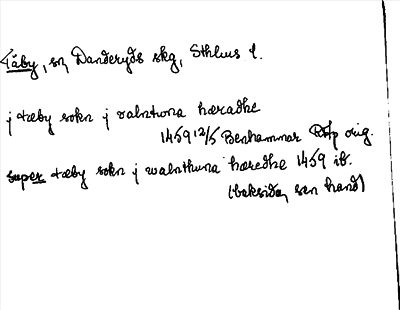 Täby, sn, Danderyds skg, Sthlms l.
j tæby sokn j valntuna hæradhe
1459 12/5 Benhammar RAp orig.
super tæby sokn j walnthuna hæredhe 1459 ib.
(baksidan, sen hand)